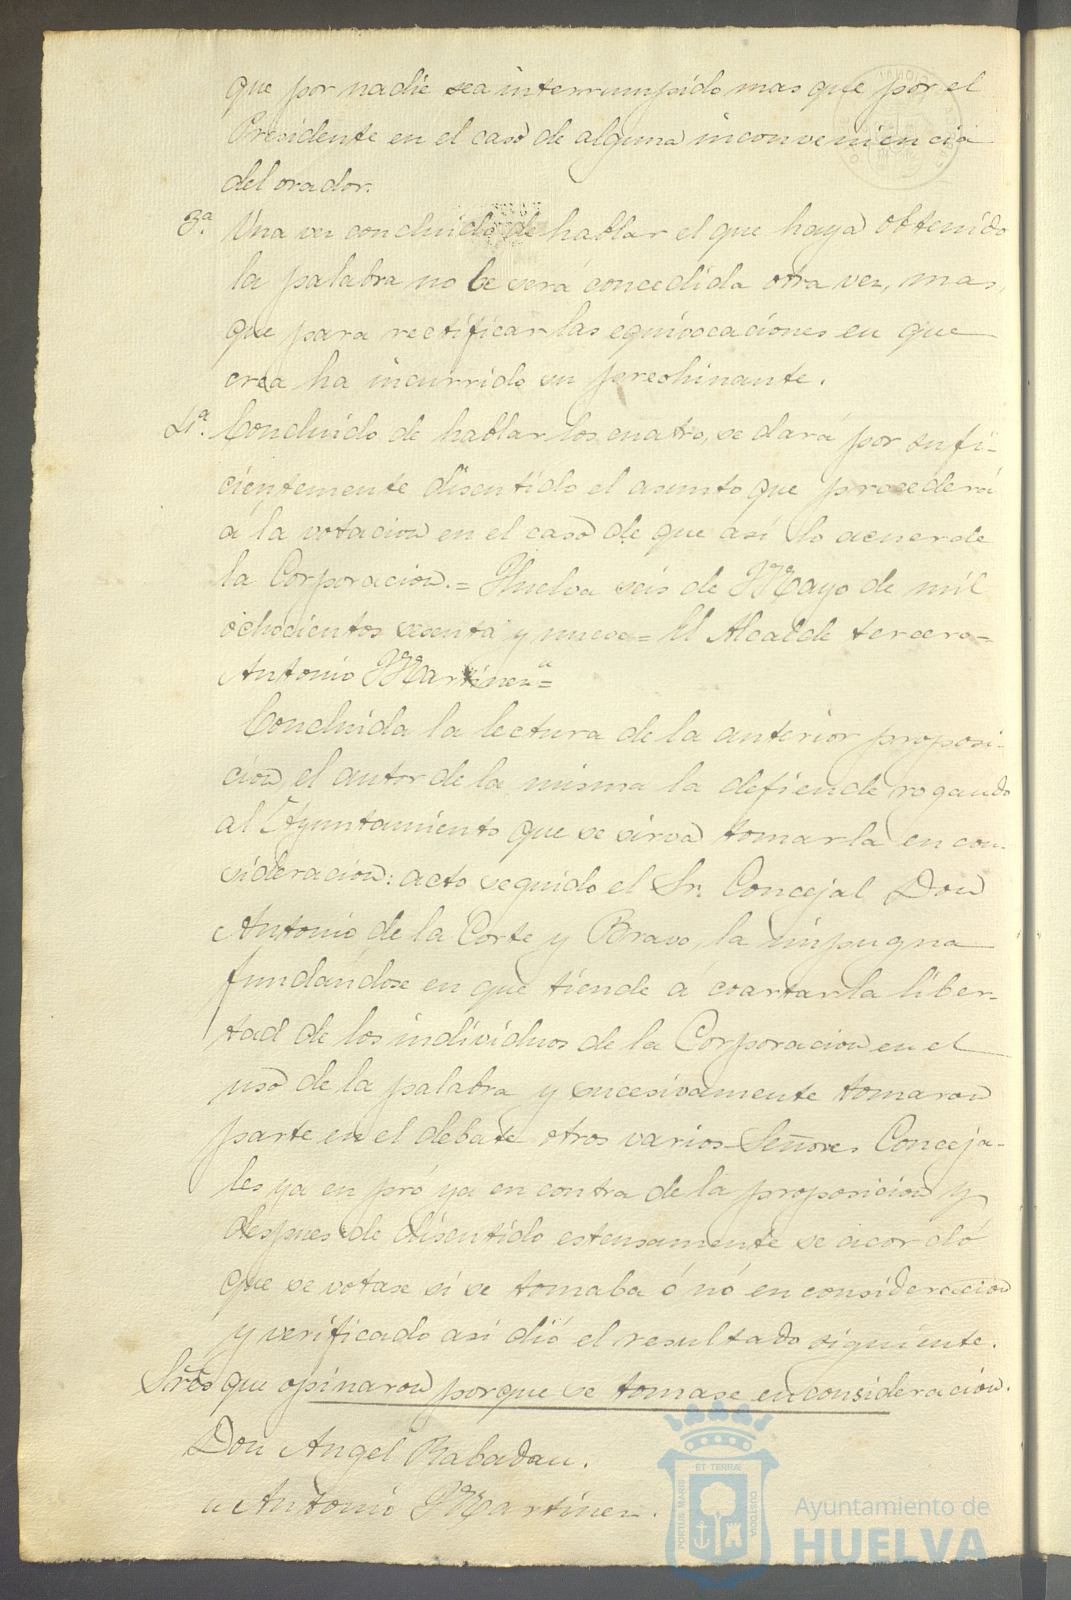 que por nadie sea interrumpido mas que por el
Presidente en el caso de alguna inconveniencia
del orador.
3.ª Una vez concluido de hablar el que haya obtenido
la palabra no le será concedida otra vez, mas,
que para rectificar las equivocaciones en que
crea ha incurrido su preohinante.
4.ª Concluido de hablar los cuatro, se dará por sufi-
cientemente discutido el asunto que procederá
á la votacion en el caso de que así lo acuerde
la Corporacion.= Huelva seis de Mayo de mil
ochocientos sesenta y nueve= El Alcalde tercero=
Antonio Martinez"=
Concluida la lectura de la anterior proposi-
cion, el autor de la misma la defiende rogando
al Ayuntamiento que se sirva tomarla en con-
sideracion: acto seguido el Sr. Concejal Don
Antonio de la Corte y Bravo, la impugna
fundándose en que tiende a coartar la liber-
tad de los individuos de la Corporacion en el
uso de la palabra y sucesivamente tomaron
parte en el debate otros varios Señores Conceja-
les ya en pró ya en contra de la proposicion y
despues de discutido estensamente se acordó
que se votase si se tomaba ó nó en consideracion
y verificado asi dió el resultado siguiente.
Sres que opinaron porque se tomase en consideracion.
Don Angel Rabadan.
" Antonio Martinez.
PORTUS MARIS
ET TERRÆ
CUSTODIA
Ayuntamiento de
HUELVA